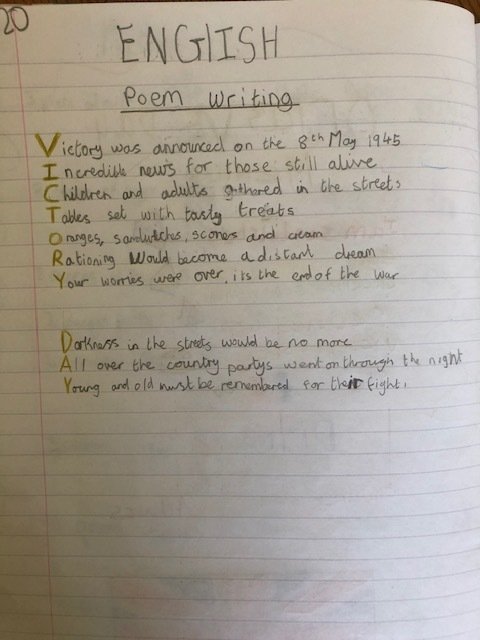 20
ENGLISH
Poem Writing
Victory was announced on the 8th May 1945
Incredible news for those still alive
Children and adults gathered in the streets
Tables set with tasty treats
Oranges, sandwiches, scones and cream
Rationing would become a distant dream
Your worries were over, its the end of the war
Darkness in the streets would be no more
All over the country partys went on through the night
Young and old must be remembered for their fight.